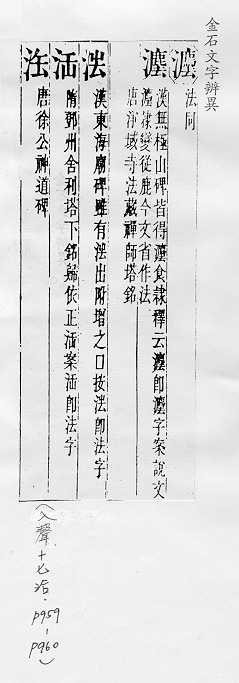 金石文字辨異
灋 法同
漢無極山碑皆得灋食隸釋云灋即灋字案說文
灋隸變從鹿今文省作法
唐淨域寺法藏禪師塔銘
漢東海廟碑雖有法出附增之口按即法字
隋鄧州舍利塔下銘歸依正案即法字
唐徐公神道碑
(入聲十七洽．P959-P960)